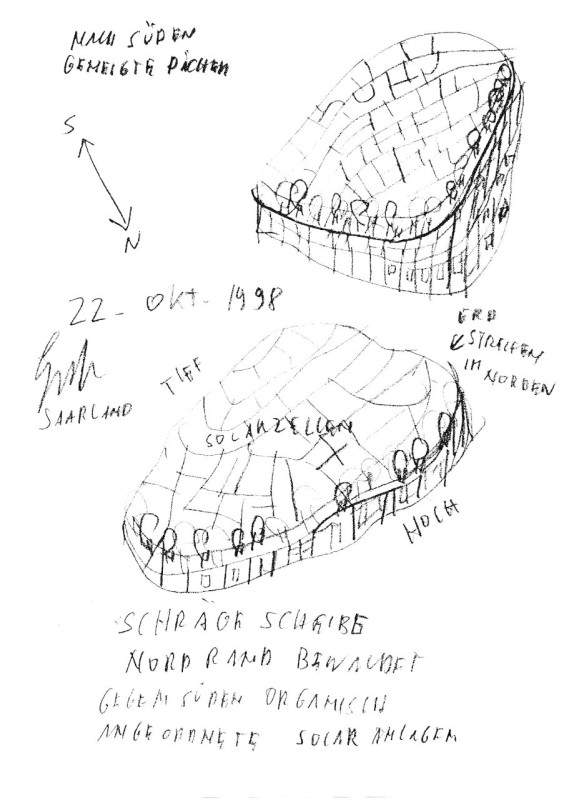 NACH SÜDEN
GENEIGTE DÄCHER
S
N
22. OKT. 1998
SAARLAND
ERD
STREIFEN
IM
NORDEN
TIEF
SOLARZELLEN
HOCH
SCHRÄGE SCHEIBE
NORDRAND BEWALDET
GEGEN SÜDEN ORGANISCH
ANGEORDNETE SOLARANLAGEN